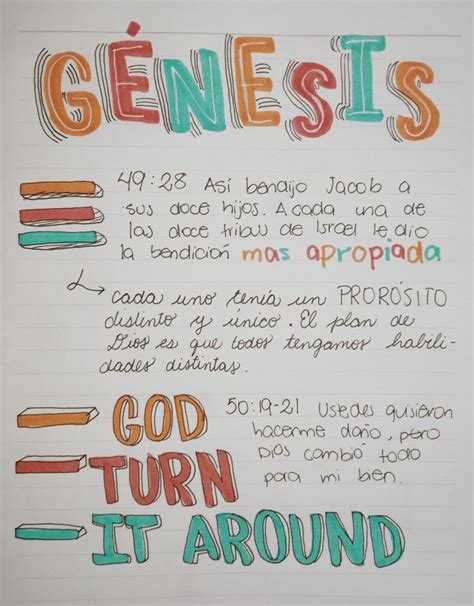 GÉNESIS
49:28 Así bendijo Jacob a
sus doce hijos. A cada una de
las doce tribus de Israel le dio
la bendición mas apropiada
cada uno tenía un PRORÓSITO
distinto y único. El plan de
Dios es que todos tengamos habili-
dades distintas.
GOD
TURN
IT AROUND
50:19-21 Ustedes quisieron
hacerme daño, pero
Dios cambió todo
para mi bien.